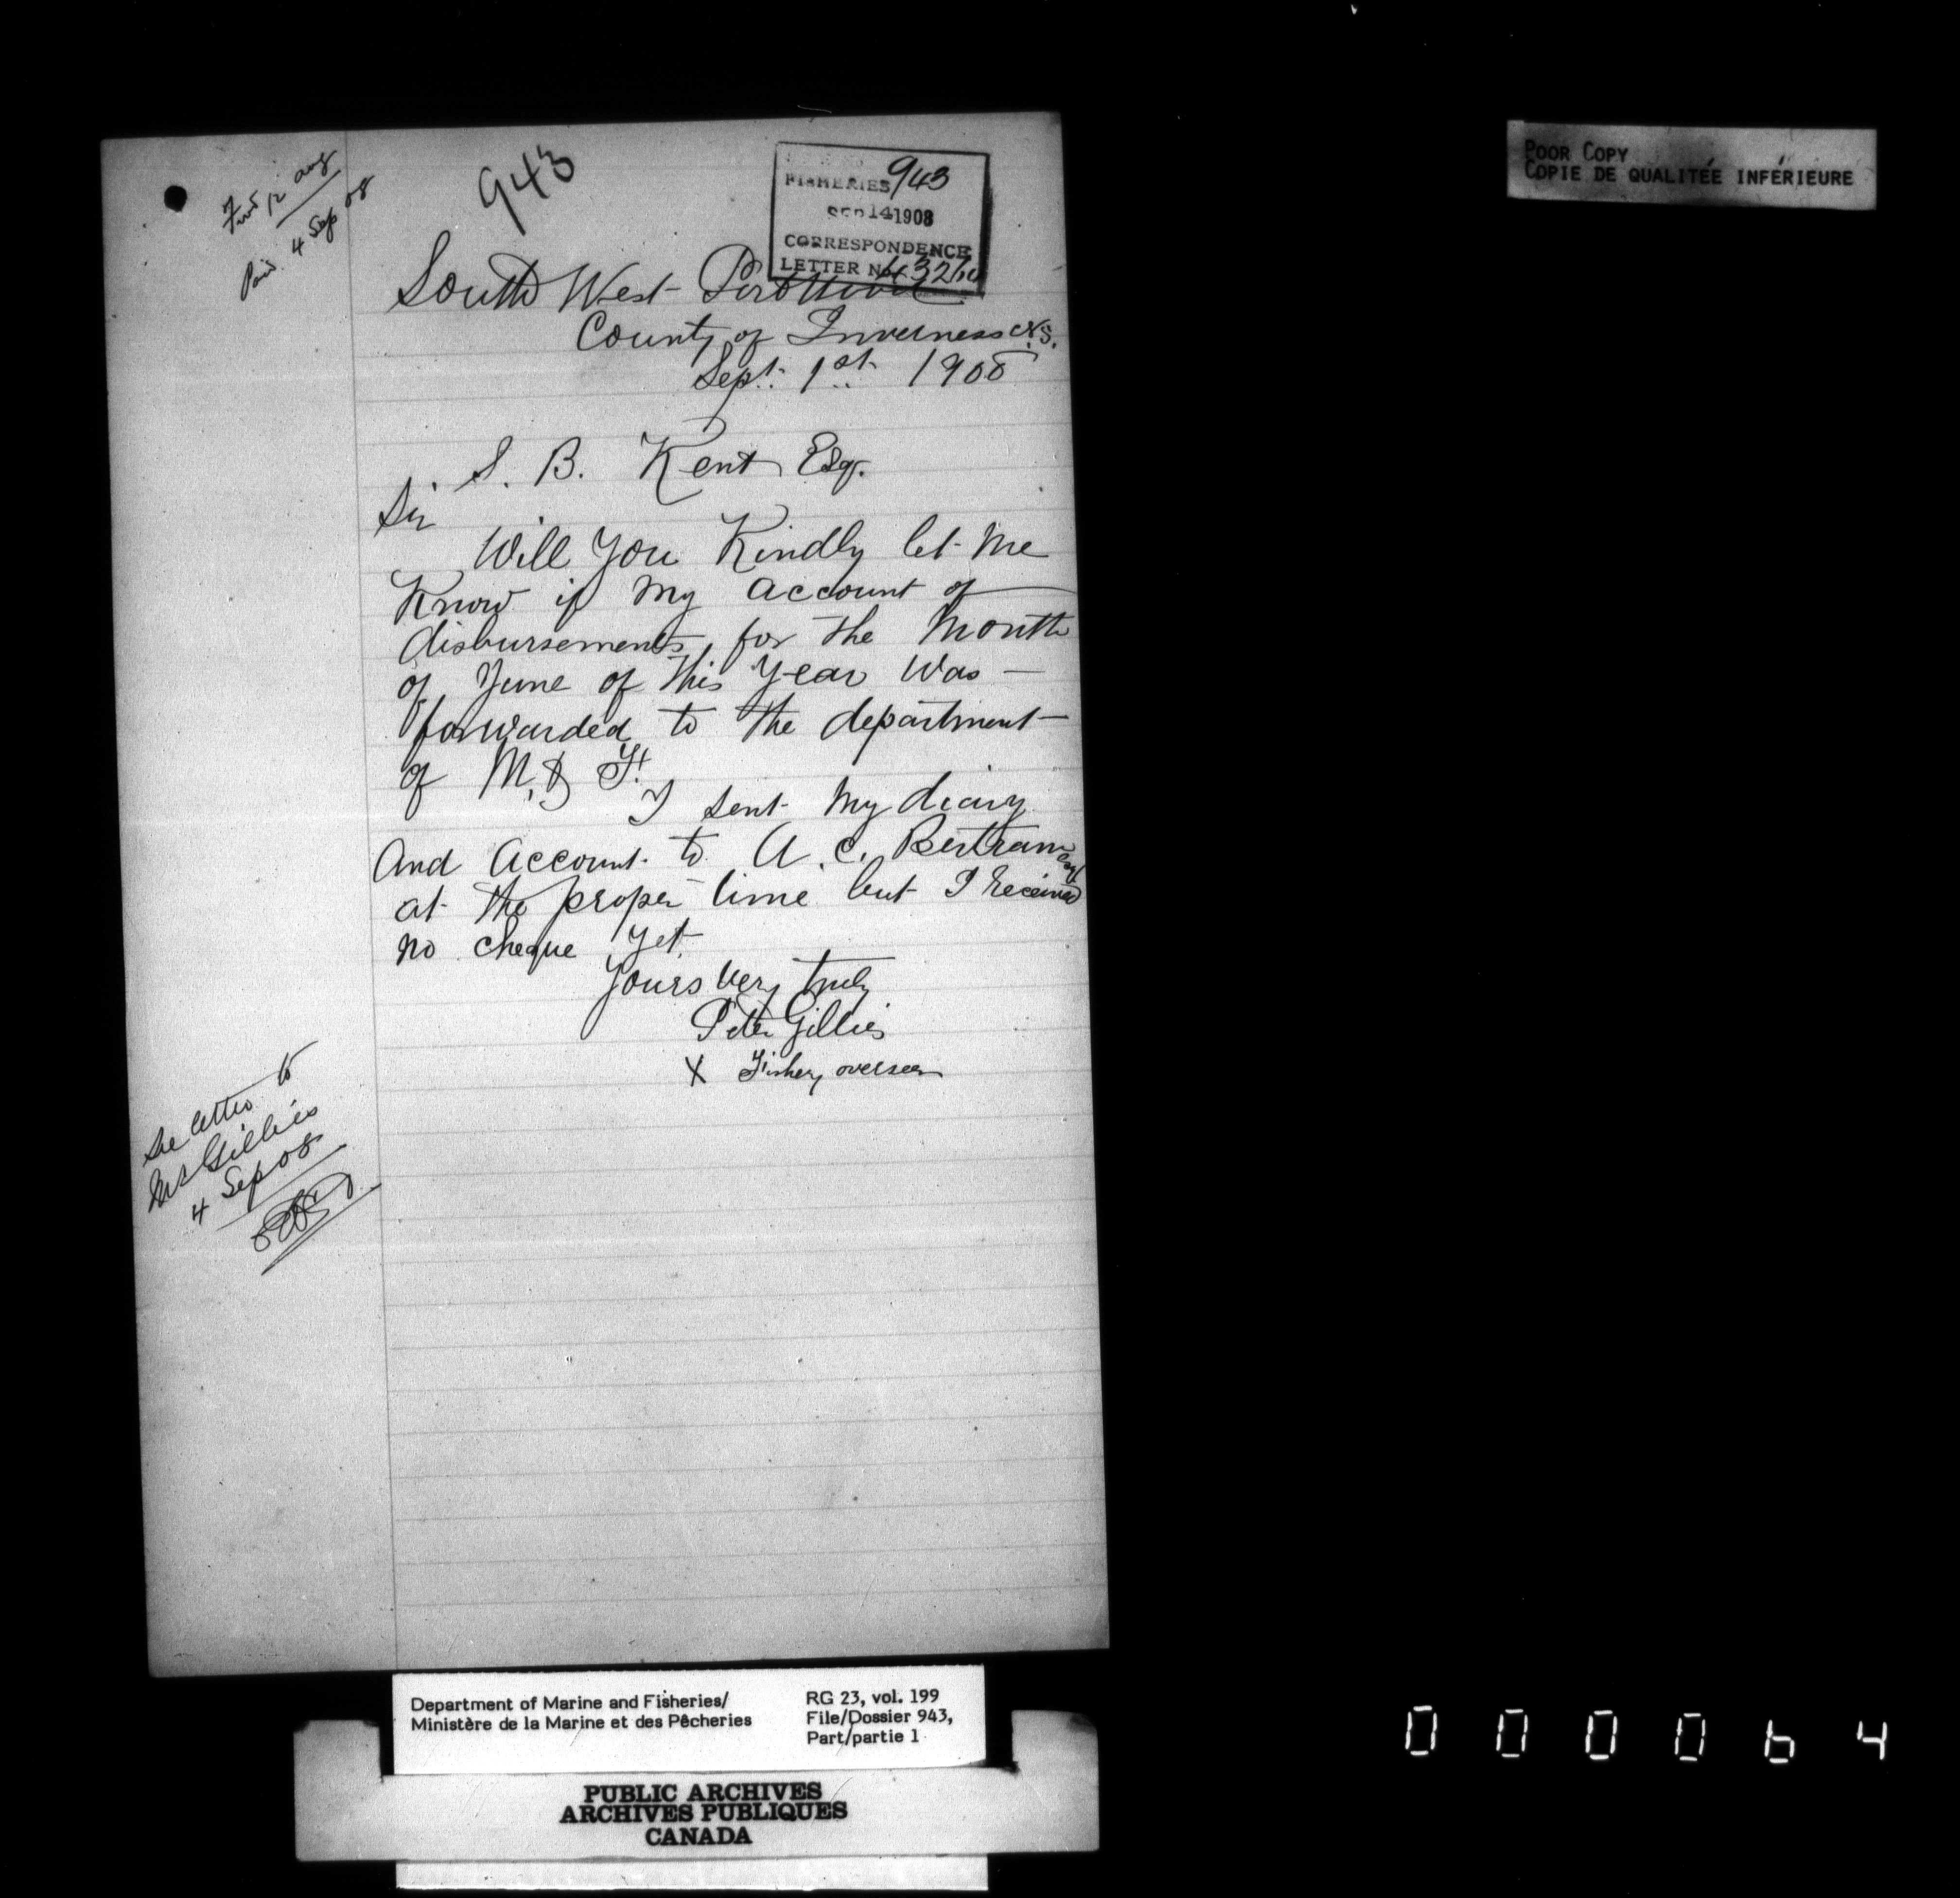 943
Fwd 12 Aug
Paid 4 Sep 08
FISHERIES 943
SEP 14 1908
CORRESPONDENCE
LETTER No.
South West
County of Inverness N.S.
Sept. 1st 1908
S. B. Kent Esq.
Sir
Will You Kindly let me
Know if my account of
disbursements for the Month
of June of this Year was —
forwarded to the department
of M. & F.
I sent my diary
And Account to A. C. Bertram Esq
at the proper time but I received
no cheque yet.
Yours very truly
Peter Gillies
X Fishery overseer
See letter to
Mr Gillies
4 Sep 08
POOR COPY
COPIE DE QUALITÉE INFÉRIEURE
Department of Marine and Fisheries/
Ministère de la Marine et des Pêcheries
RG 23, vol. 199
File/Dossier 943,
Part/partie 1
PUBLIC ARCHIVES
ARCHIVES PUBLIQUES
CANADA
000064